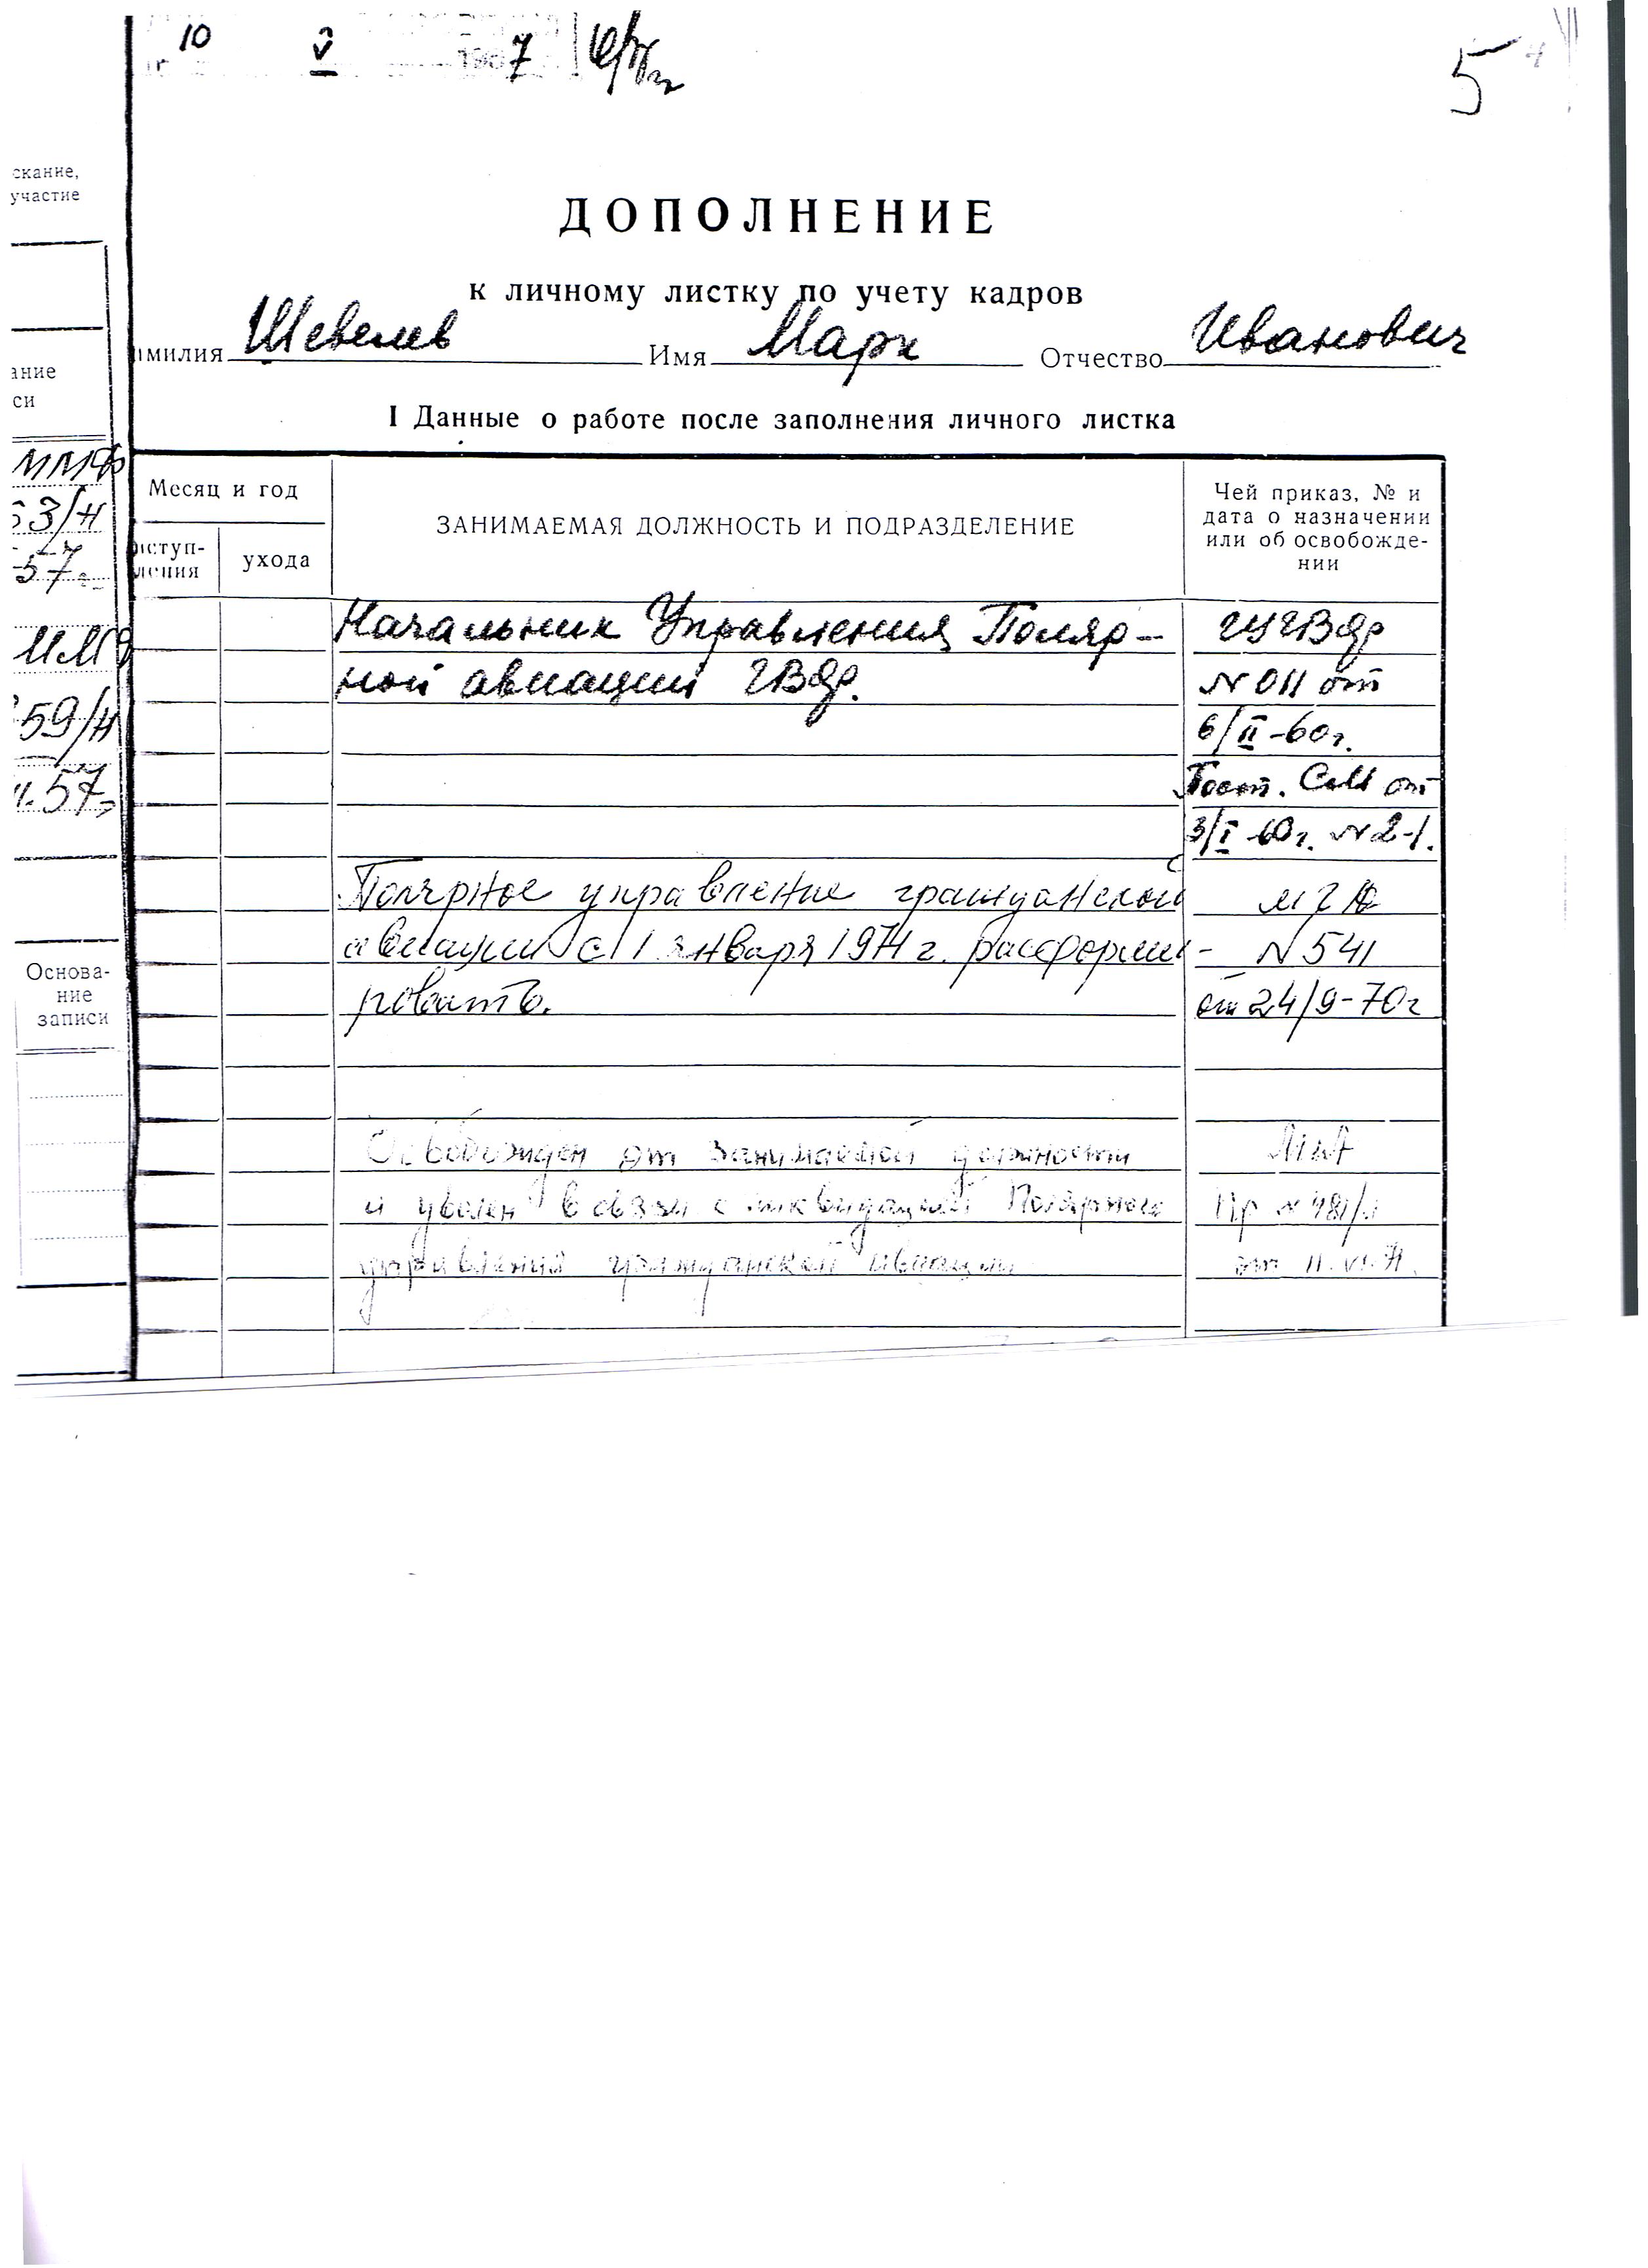 10 V 7
5
скание,
участие
ДОПОЛНЕНИЕ
к личному листку по учету кадров
амилия Шевелев Имя Марк Отчество Иванович
ание
си
I Данные о работе после заполнения личного листка
ММФ
53/н
57 г.
ММФ
59/н
57
Основа-
ние
записи
Месяц и год
поступ-
ления
ухода
ЗАНИМАЕМАЯ ДОЛЖНОСТЬ И ПОДРАЗДЕЛЕНИЕ
Чей приказ, № и
дата о назначении
или об освобожде-
нии
Начальник Управления Поляр- ГУГВФ
ной авиации ГВФ. № 011 от
6/II-60г.
Пост. СМ от
3/I 60г. № 2-1.
Полярное управление гражданской МГА
авиации с 1 января 1971 г. расформи- № 541
ровать. от 24/9-70г
Освобожден от занимаемой должности МГА
и уволен в связи с ликвидацией Полярного Пр № 481/л
управления гражданской авиации от 11.VI.71.